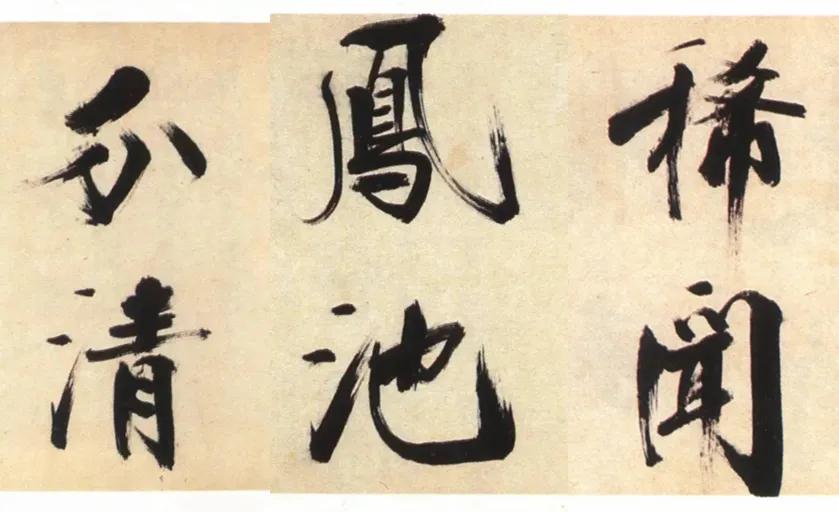 稀聞
鳳池
分清